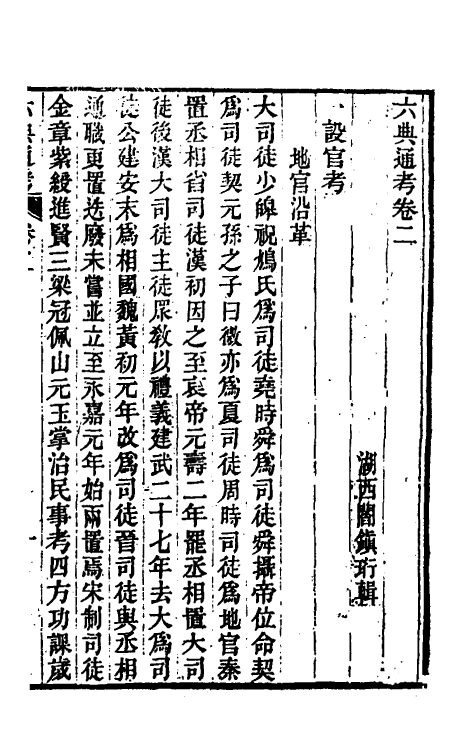 六典通考卷二
湖西閻鎮珩輯
設官考
地官沿革
大司徒少皥祝鳩氏爲司徒堯時舜爲司徒舜攝帝位命契
爲司徒契元孫之子曰微亦爲夏司徒周時司徒爲地官秦
置丞相省司徒漢初因之至哀帝元壽二年罷丞相置大司
徒後漢大司徒主徒眾教以禮義建武二十七年去大爲司
徒公建安末爲相國魏黃初元年改爲司徒晉司徒與丞相
通職更置迭廢未嘗並立至永嘉元年始兩置焉宋制司徒
金章紫綬進賢三梁冠佩山元玉掌治民事考四方功課歲
六典通考
卷二
一